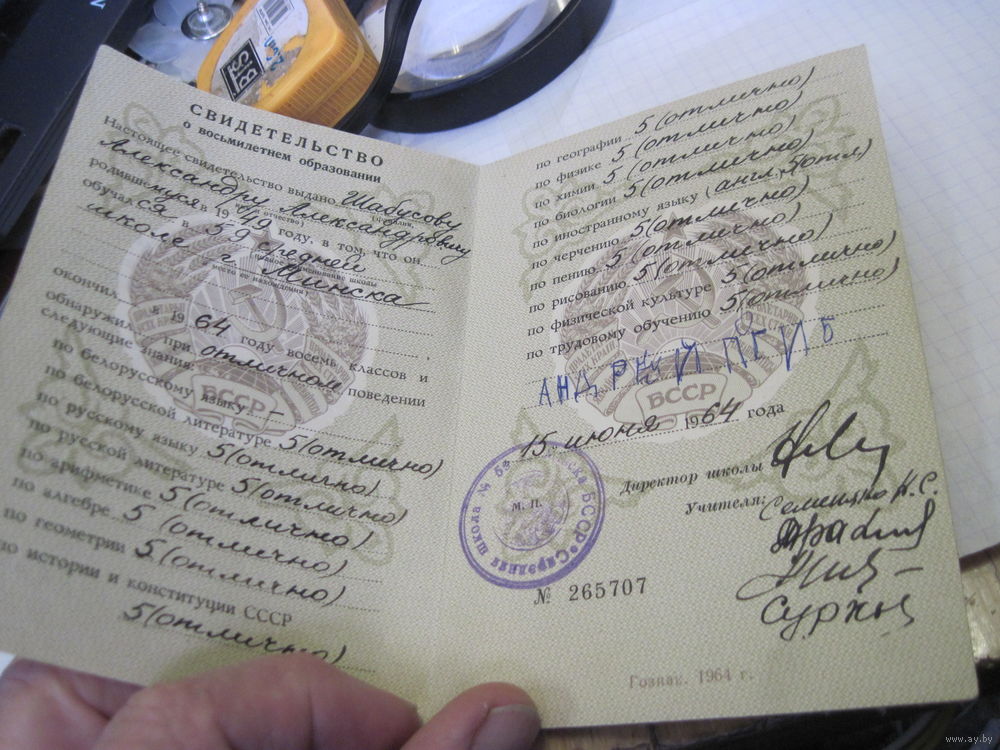 СВИДЕТЕЛЬСТВО
о восьмилетнем образовании
Настоящее свидетельство выдано Шабусову
(фамилия,
Александру Александровичу
имя и отчество)
родившемуся в 1949 году, в том, что он
обучался в 59 средней
школе г. Минска
местонахождение)
окончил 1964 году восемь классов и
обнаружил при отличном поведении
следующие знания:
по белорусскому языку: —
по белорусской литературе 5 (отлично)
по русскому языку 5 (отлично)
по русской литературе 5 (отлично)
по арифметике 5 (отлично)
по алгебре 5 (отлично)
по геометрии 5 (отлично)
по истории и конституции СССР
5 (отлично)
БССР
по географии 5 (отлично)
по физике 5 (отлично)
по химии 5 (отлично)
по биологии 5 (отлично)
по иностранному языку (англ.) 5 (отл)
по черчению 5 (отлично)
по пению 5 (отлично)
по рисованию 5 (отлично)
по физической культуре 5 (отлично)
по трудовому обучению 5 (отлично)
БССР
15 июня 1964 года
М. П.
Директор школы
Учителя:
№ 265707
Гознак. 1964 г.
www.ay.by